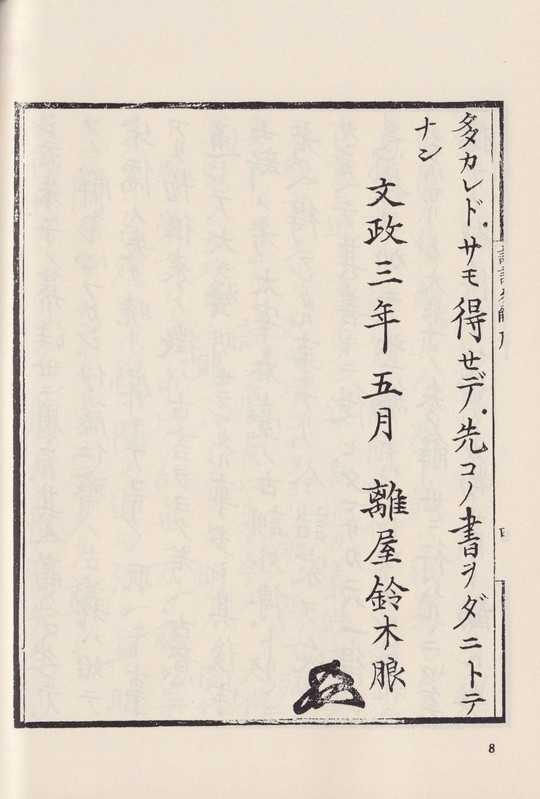 多カレド、サモ得セデ、先コノ書ヲダニトテ
ナン
文政三年五月 離屋鈴木朖
8